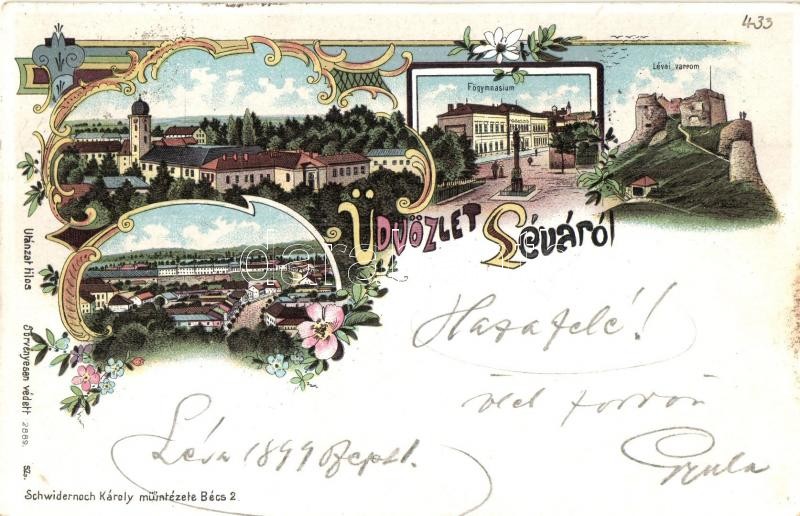 433
Lévai varrom
Főgymnasium
ÜDVÖZLET Léváról
darabanth
Hazafelé!
Léva 1899 Szept.
Gyula
Utánzat tilos Törvényesen védett 2889. 526.
Schwidernoch Károly műintézete Bécs 2.